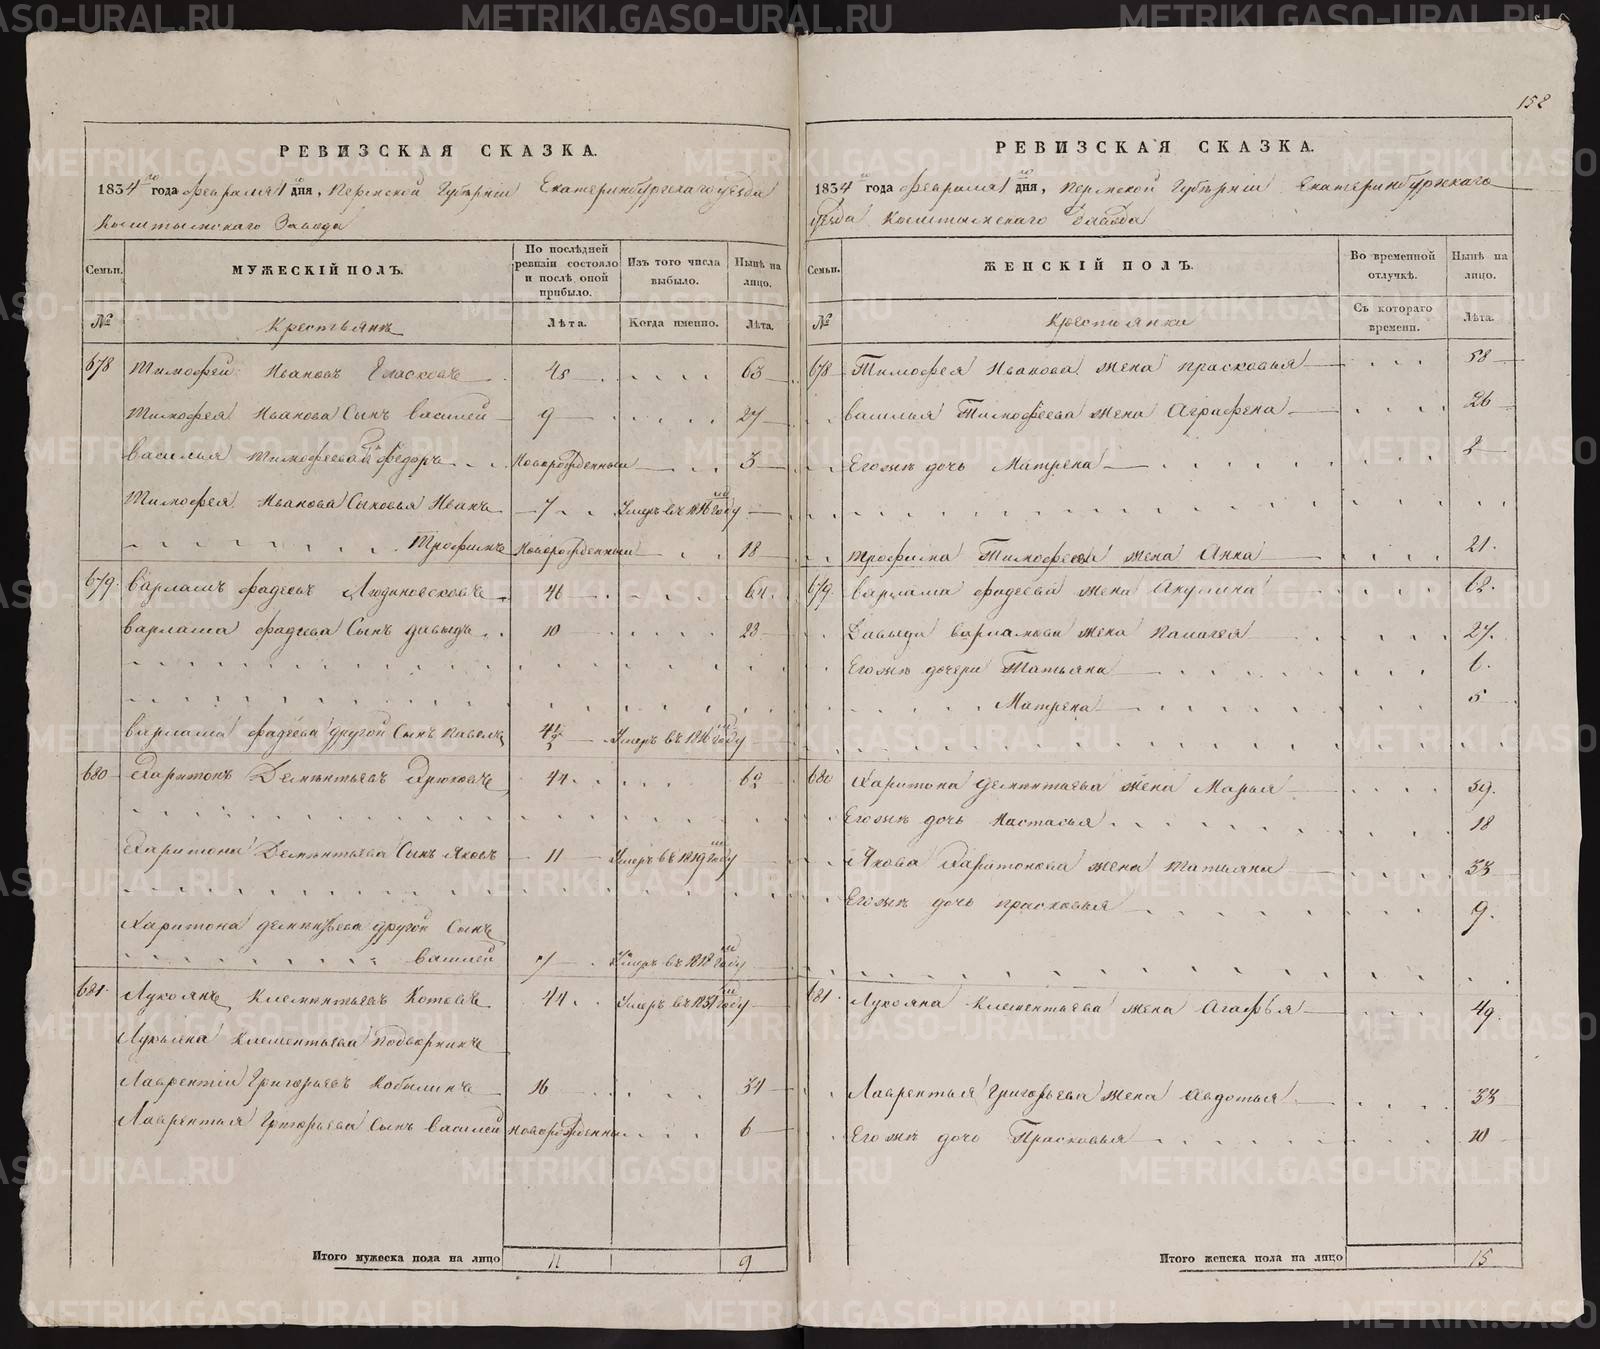 152
РЕВИЗСКАЯ СКАЗКА.
1834го года февраля 1 дня, Пермской Губерніи Екатеринбургскаго уезда
Заводa
Семьи. МУЖЕСКІЙ ПОЛЪ. По послѣдней ревизіи состояло и послѣ оной прибыло. Изъ того числа выбыло. Нынѣ на лицо.
№ Крестьянъ Лѣта. Когда именно. Лѣта.
678 Тимофей Ивановъ 45 63
Тимофея Иванова Сынъ Василей 9 27
Василья Тимофеева Федоръ Новорожденный 3
Тимофея Иванова Сыновья Иванъ 7 Умеръ въ 1816 году
Трофимъ Новорожденный 18
679 Варламъ Фадеевъ 46 64
Варлама Фадеева Сынъ Давыдъ 10 28
Варлама Фадеева другой Сынъ Павелъ Умеръ въ 1816 году
680 Харитонъ Дементьевъ Крюковъ 44 62
Харитона Дементьева Сынъ Яковъ 11 Умеръ въ 1819 году
Харитона Дементьева другой Сынъ
Василей 7 Умеръ въ 1818 году
681 Лукоянъ Клементьевъ Котовъ 44 Умеръ въ 1831 году
Лукьяна Клементьева Подворникъ
Лаврентій Григорьевъ Кобылинъ 16 34
Лаврентья Григорьева Сынъ Василей новорожденны 6
Итого мужеска пола на лицо 11 9
РЕВИЗСКАЯ СКАЗКА.
1834го года февраля 1го дня, Пермской Губерніи Екатеринбургскаго
уезда Завода
Семьи. ЖЕНСКІЙ ПОЛЪ. Во временной отлучкѣ. Нынѣ на лицо.
№ Крестьянки Съ котораго времени. Лѣта.
678 Тимофея Иванова жена Прасковья 58
Василья Тимофеева жена Аграфена 26
Егожъ дочь Матрена 2
Трофима Тимофеева жена Анна 21
679 Варлама Фадеева жена Акулина 62
Давыда Варламова жена Палагея 27
Егожъ дочери Татьяна 6
Матрена 5
680 Харитона Дементьева жена Марья 59
Егожъ дочь Настасья 18
Якова Харитонова жена Татьяна 33
Егожъ дочь Прасковья 9
681 Лукояна Клементьева жена Агафья 49
Лаврентья Григорьева жена Авдотья 33
Егожъ дочь Прасковья 10
Итого женска пола на лицо 15
METRIKI.GASO-URAL.RU